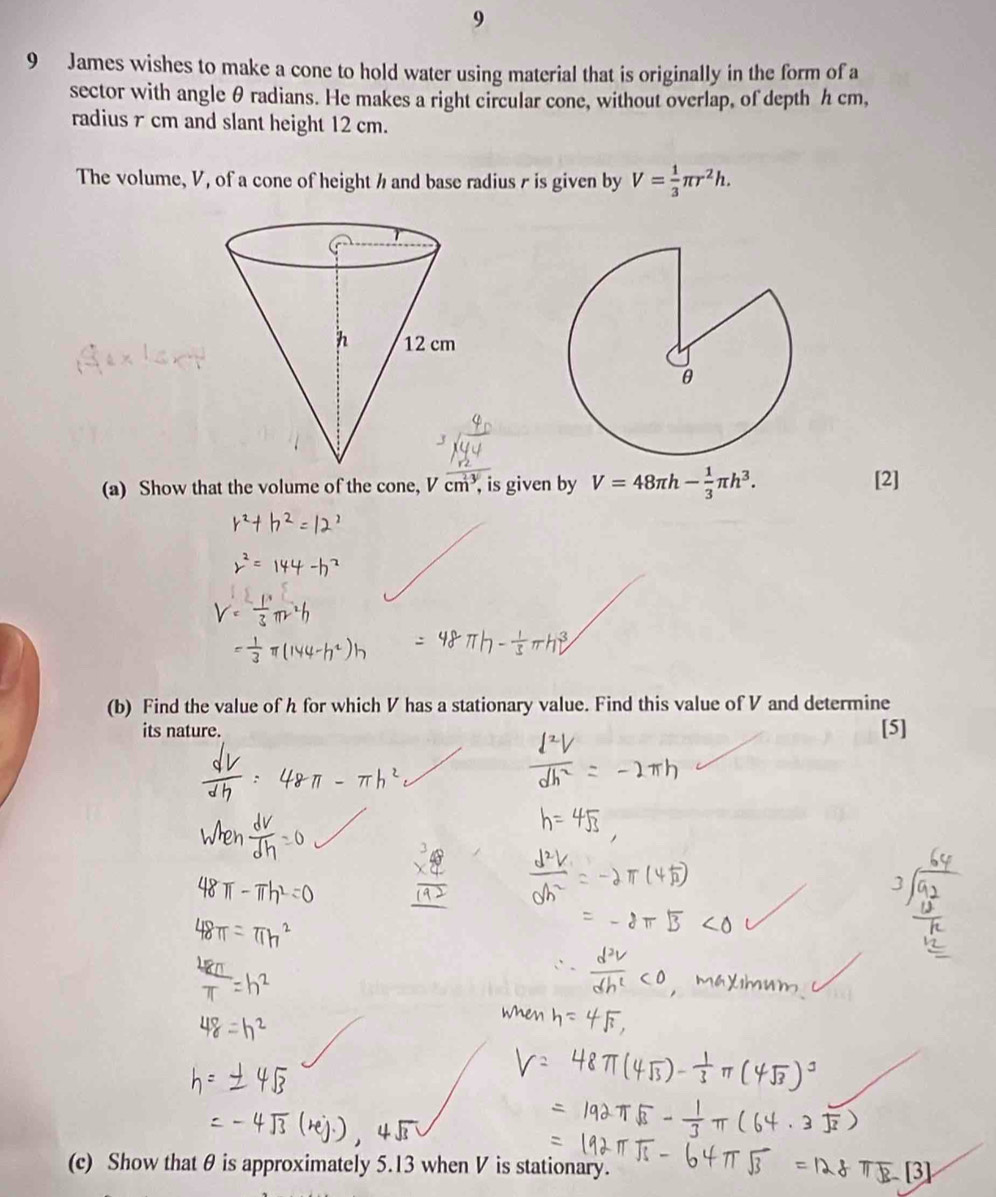 9
9 James wishes to make a cone to hold water using material that is originally in the form of a
sector with angle θ radians. He makes a right circular cone, without overlap, of depth h cm,
radius r cm and slant height 12 cm.
The volume, V, of a cone of height h and base radius r is given by V = 1/3 πr²h.
r
h
12 cm
θ
(a) Show that the volume of the cone, V cm³, is given by V = 48πh − 1/3 πh³. [2]
r² + h² = 12²
r² = 144 - h²
V = 1/3 πr²h
= 1/3 π(144-h²)h = 48πh - 1/3 πh³
(b) Find the value of h for which V has a stationary value. Find this value of V and determine
its nature. [5]
dV/dh = 48π - πh²
When dV/dh = 0
48π - πh² = 0
48π = πh²
48π/π = h²
48 = h²
h = ± 4√3
= -4√3 (rej.), 4√3
d²V/dh² = -2πh
h = 4√3,
48
×4
192
d²V/dh² = -2π(4√3)
= -8π√3 < 0
∴ d²V/dh² < 0, maximum.
when h = 4√3,
V = 48π(4√3) - 1/3 π(4√3)³
= 192π√3 - 1/3 π(64 · 3√3)
= 192π√3 - 64π√3 = 128π√3
(c) Show that θ is approximately 5.13 when V is stationary. [3]